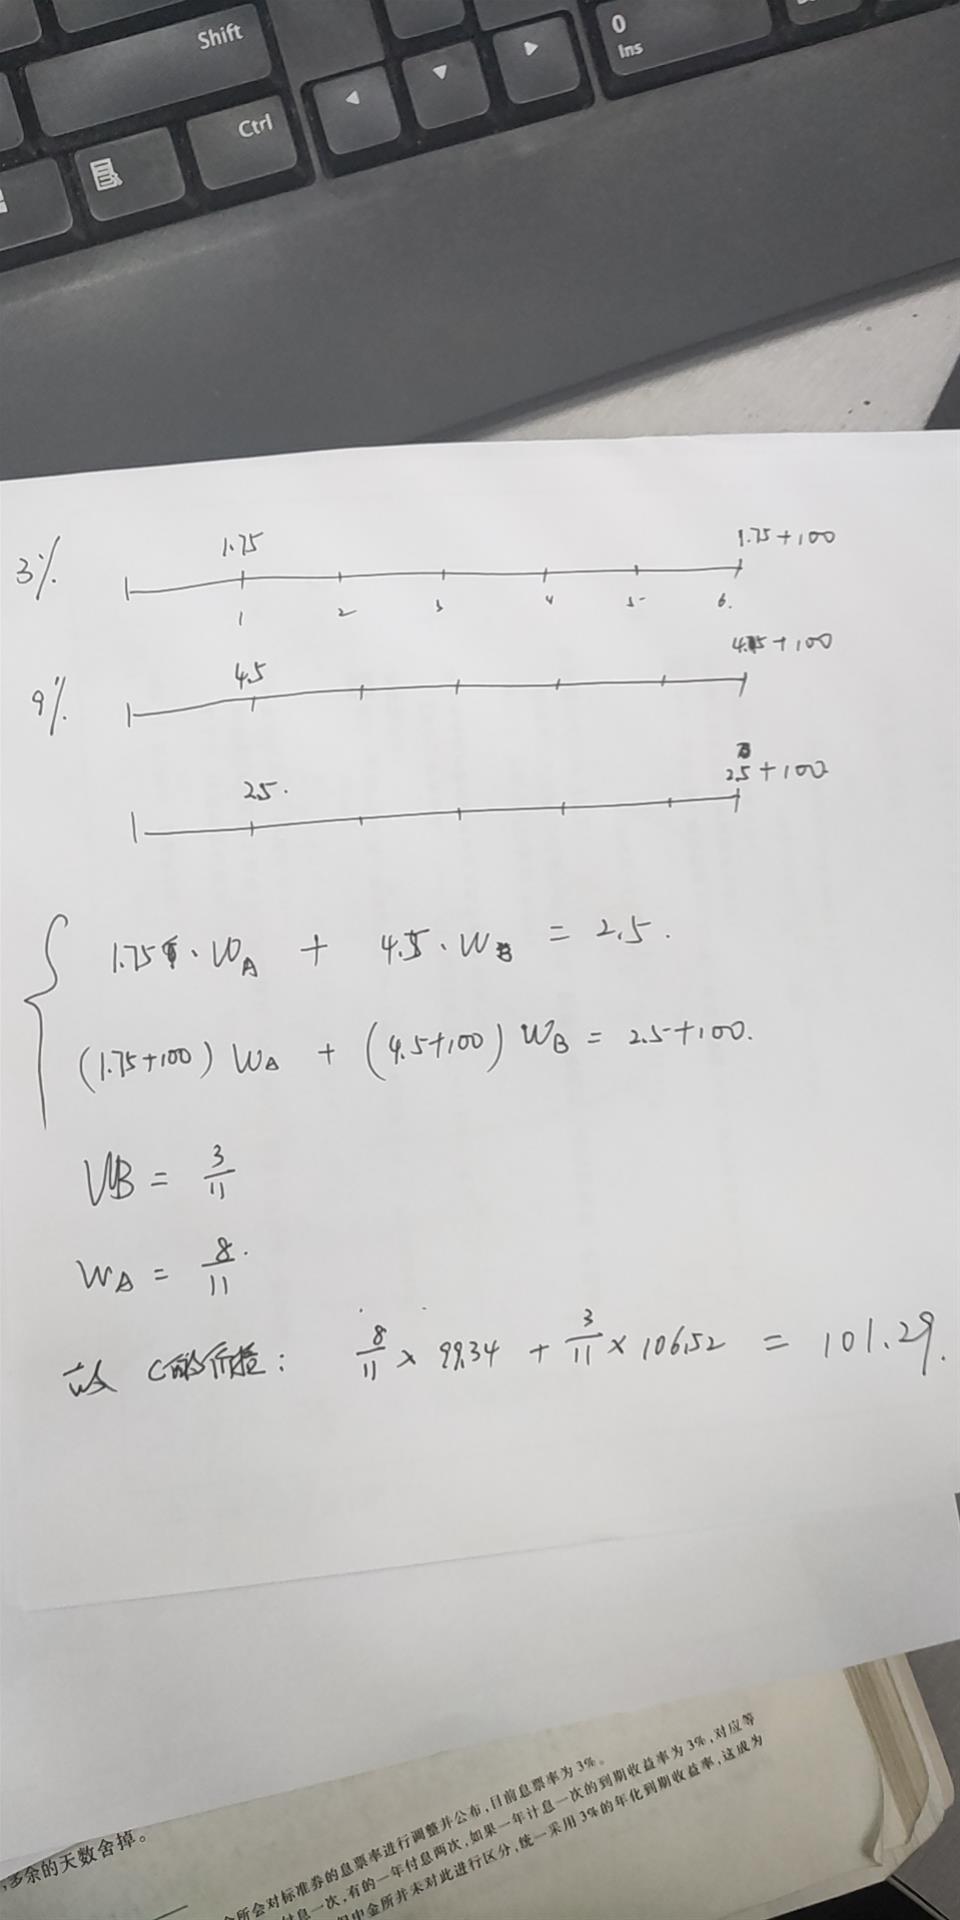 Shift
0
Ins
Ctrl
3%
1.75
1.75+100
1 2 3 4 5 6.
9%
4.5
4.5+100
2.5.
2.5+100
1.75·WA + 4.5·WB = 2.5.
(1.75+100) WA + (4.5+100) WB = 2.5+100.
WB = 3/11
WA = 8/11.
故 C的价格: 8/11 × 99.34 + 3/11 × 106.52 = 101.29.
,多余的天数舍掉。
所会对标准券的息票率进行调整并公布,目前息票率为3%。
息一次,有的一年付息两次,如果一年计息一次的到期收益率为3%,对应等
中金所并未对此进行区分,统一采用3%的年化到期收益率,这成为